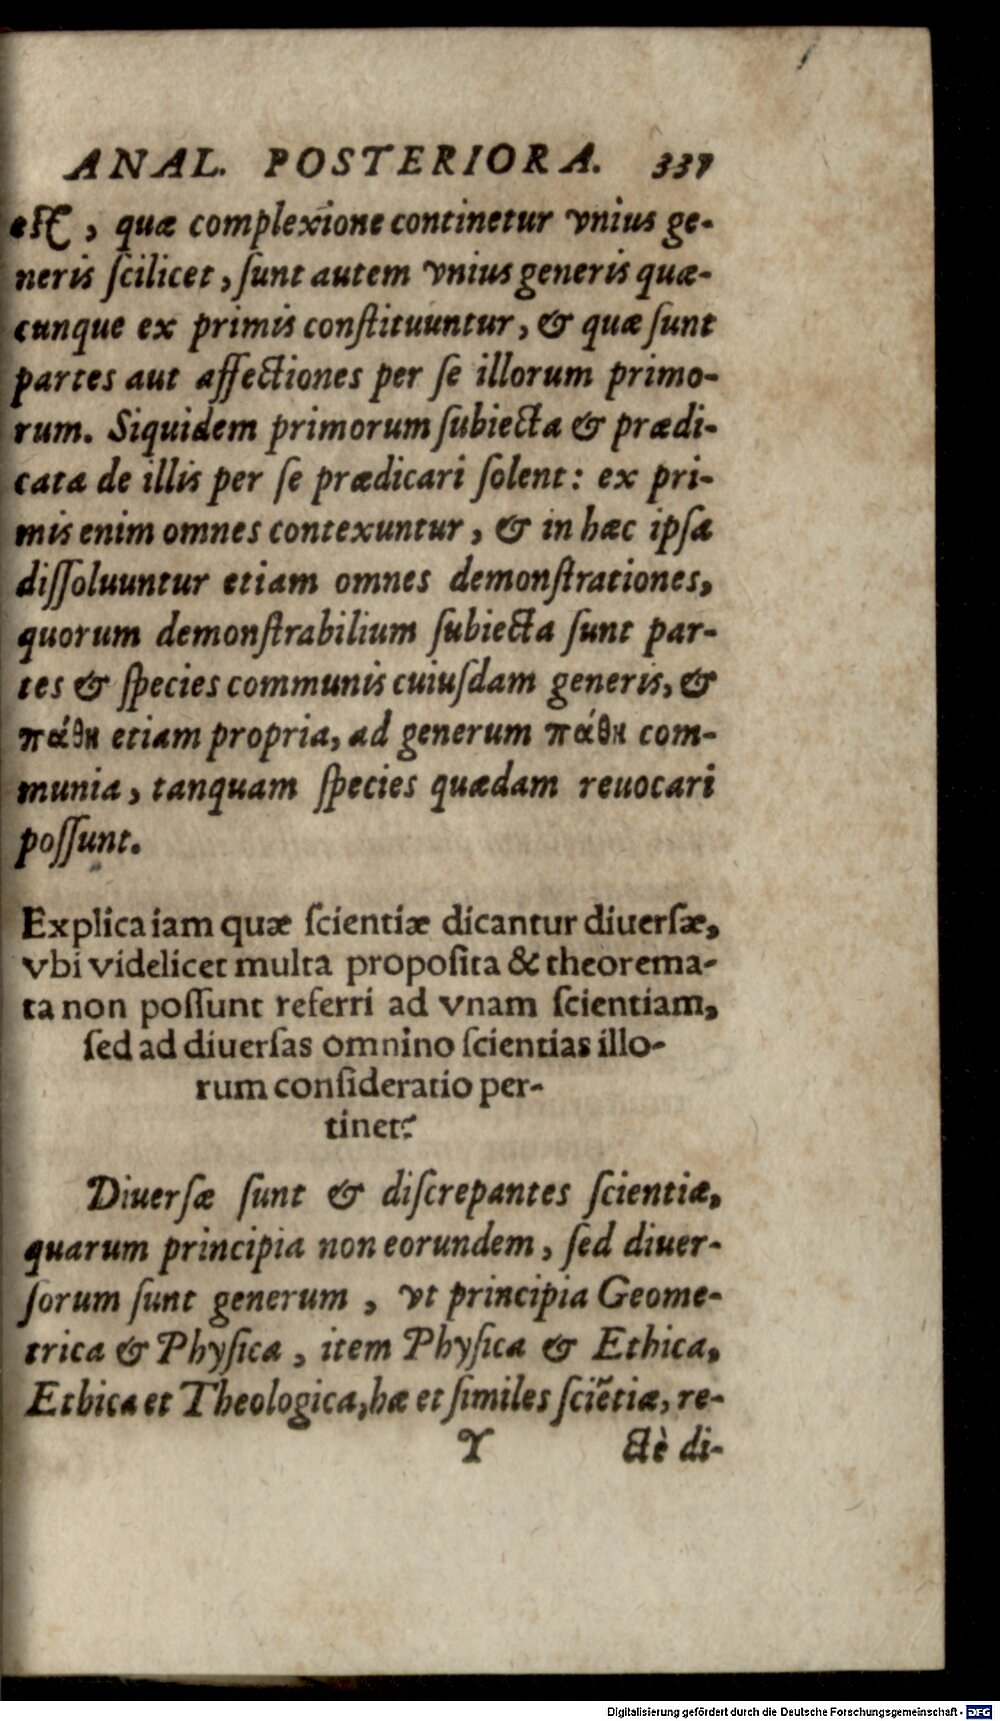 ANAL. POSTERIORA. 337
est, quæ complexione continetur vnius ge-
neris ſcilicet, ſunt autem vnius generis quæ-
cunque ex primis conſtituuntur, & quæ ſunt
partes aut affectiones per ſe illorum primo-
rum. Siquidem primorum ſubiecta & prædi-
cata de illis per ſe prædicari ſolent: ex pri-
mis enim omnes contexuntur, & in hæc ipſa
diſſoluuntur etiam omnes demonſtrationes,
quorum demonſtrabilium ſubiecta ſunt par-
tes & ſpecies communis cuiuſdam generis, &
πάθη etiam propria, ad generum πάθη com-
munia, tanquam ſpecies quædam reuocari
poſſunt.
Explica iam quæ ſcientiæ dicantur diuerſæ,
vbi videlicet multa propoſita & theorema-
ta non poſſunt referri ad vnam ſcientiam,
ſed ad diuerſas omnino ſcientias illo-
rum conſideratio per-
tinet?
Diuerſæ ſunt & diſcrepantes ſcientiæ,
quarum principia non eorundem, ſed diuer-
ſorum ſunt generum, vt principia Geome-
trica & Phyſica, item Phyſica & Ethica,
Ethica et Theologica, hæ et ſimiles ſciẽtiæ, re-
Y ctè di-
Digitalisierung gefördert durch die Deutsche Forschungsgemeinschaft - DFG